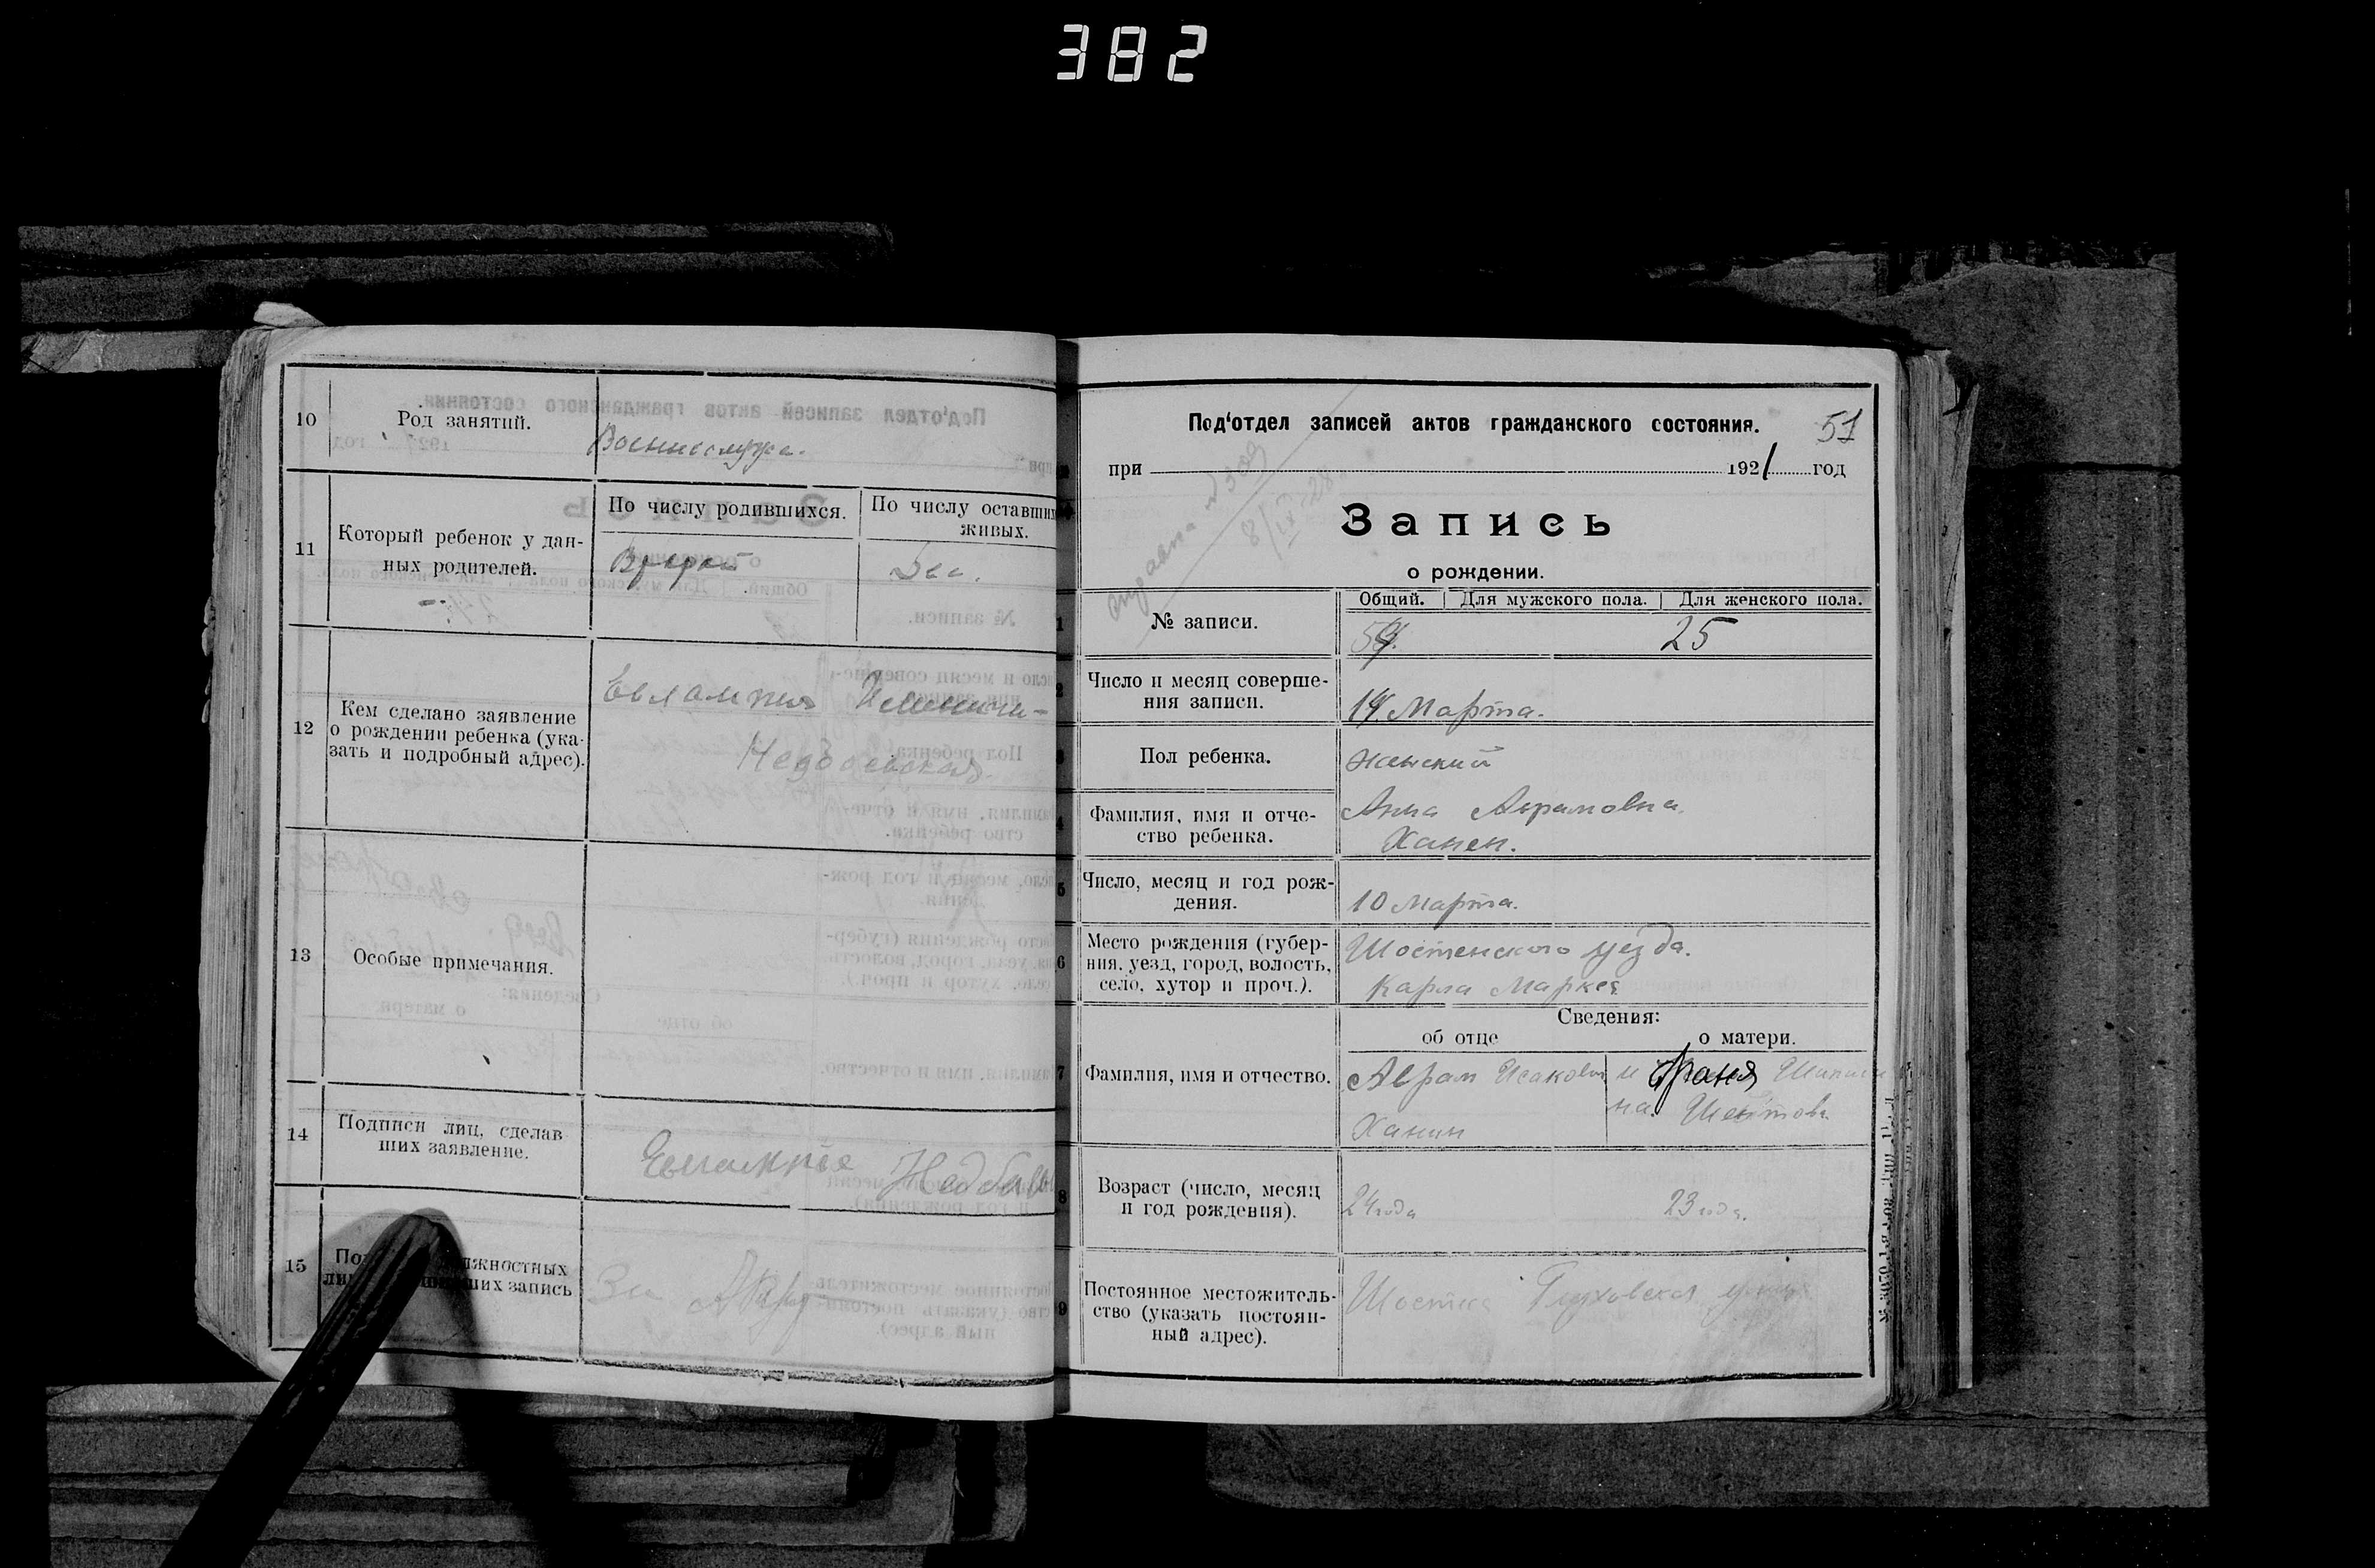 382
10
Род занятий.
Военнослуж.
11
Который ребенок у дан-
ных родителей.
По числу родившихся.
По числу оставших
живых.
Второй
12
Кем сделано заявление
о рождении ребенка (ука-
зать и подробный адрес).
Евлампия
13
Особые примечания.
14
Подписи лиц, сделав
ших заявление.
15
лжностных
их запись
За
Под'отдел записей актов гражданского состояния.
51
при 1921 год
8/IX-28
Запись
о рождении.
1
№ записи.
Общий.
Для мужского пола.
Для женского пола.
25
2
Число и месяц соверше-
ния записи.
14 Марта.
3
Пол ребенка.
женский
4
Фамилия, имя и отче-
ство ребенка.
Анна Аврамовна.
Ханен.
5
Число, месяц и год рож-
дения.
10 Марта.
6
Место рождения (губер-
ния, уезд, город, волость,
село, хутор и проч.).
Шостенского уезда.
Карла Маркса
Сведения:
об отце
о матери.
7
Фамилия, имя и отчество.
Аврам Исакович
Ханин
Фаня
8
Возраст (число, месяц
и год рождения).
24 года
23 года.
9
Постоянное местожитель-
ство (указать постоян-
ный адрес).
Шостка Глуховская улица